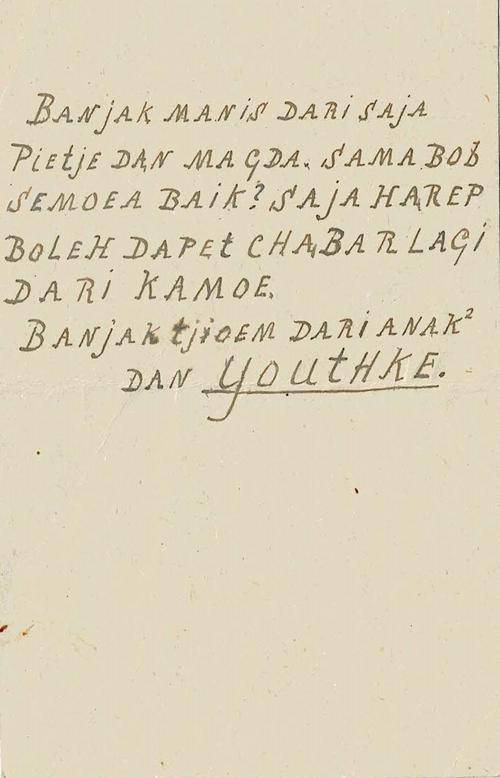 BANjAK MANiS DARi SAjA
PiEtjE DAN MAGDA. SAMA BOB
SEMOEA BAiK? SAjA HAREP
BOLEH DAPEt CHABAR LAGi
DARi KAMOE.
BANjAK tjiOEM DARi ANAK²
DAN YOUtHKE.